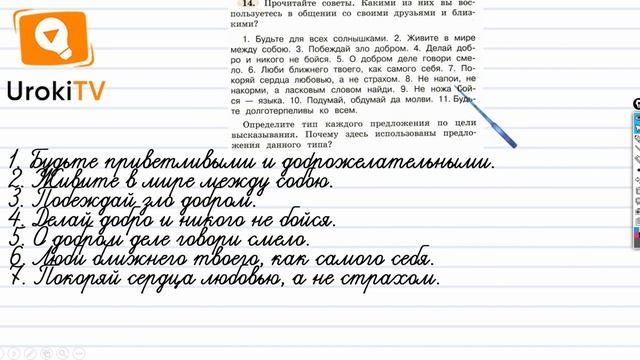 14. Прочитайте советы. Какими из них вы вос-
пользуетесь в общении со своими друзьями и близ-
кими?
1. Будьте для всех солнышками. 2. Живите в мире
между собою. 3. Побеждай зло добром. 4. Делай доб-
ро и никого не бойся. 5. О добром деле говори сме-
ло. 6. Люби ближнего твоего, как самого себя. 7. По-
коряй сердца любовью, а не страхом. 8. Не напои, не
накорми, а ласковым словом найди. 9. Не ножа бой-
ся — языка. 10. Подумай, обдумай да молви. 11. Будь-
те долготерпеливы ко всем.
Определите тип каждого предложения по цели
высказывания. Почему здесь использованы предло-
жения данного типа?
UrokiTV
1. Будьте приветливыми и доброжелательными.
2. Живите в мире между собою.
3. Побеждай зло добром.
4. Делай добро и никого не бойся.
5. О добром деле говори смело.
6. Люби ближнего твоего, как самого себя.
7. Покоряй сердца любовью, а не страхом.